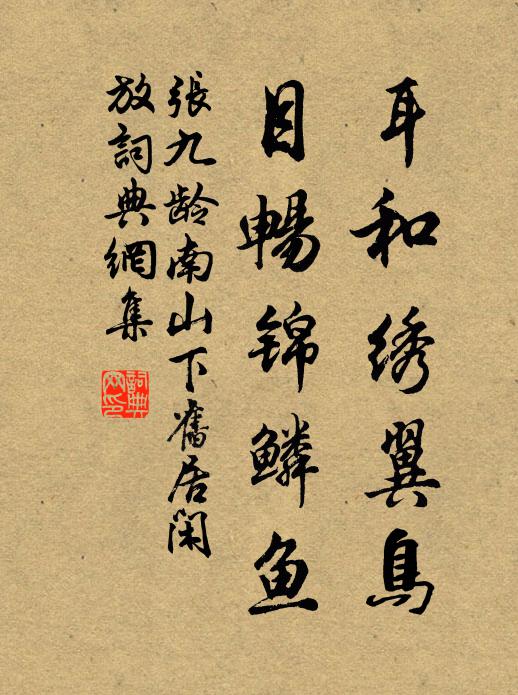 耳和绣翼鳥
目暢锦鳞鱼
張九龄南山下舊居閑
放詞典網集
詞典
网印